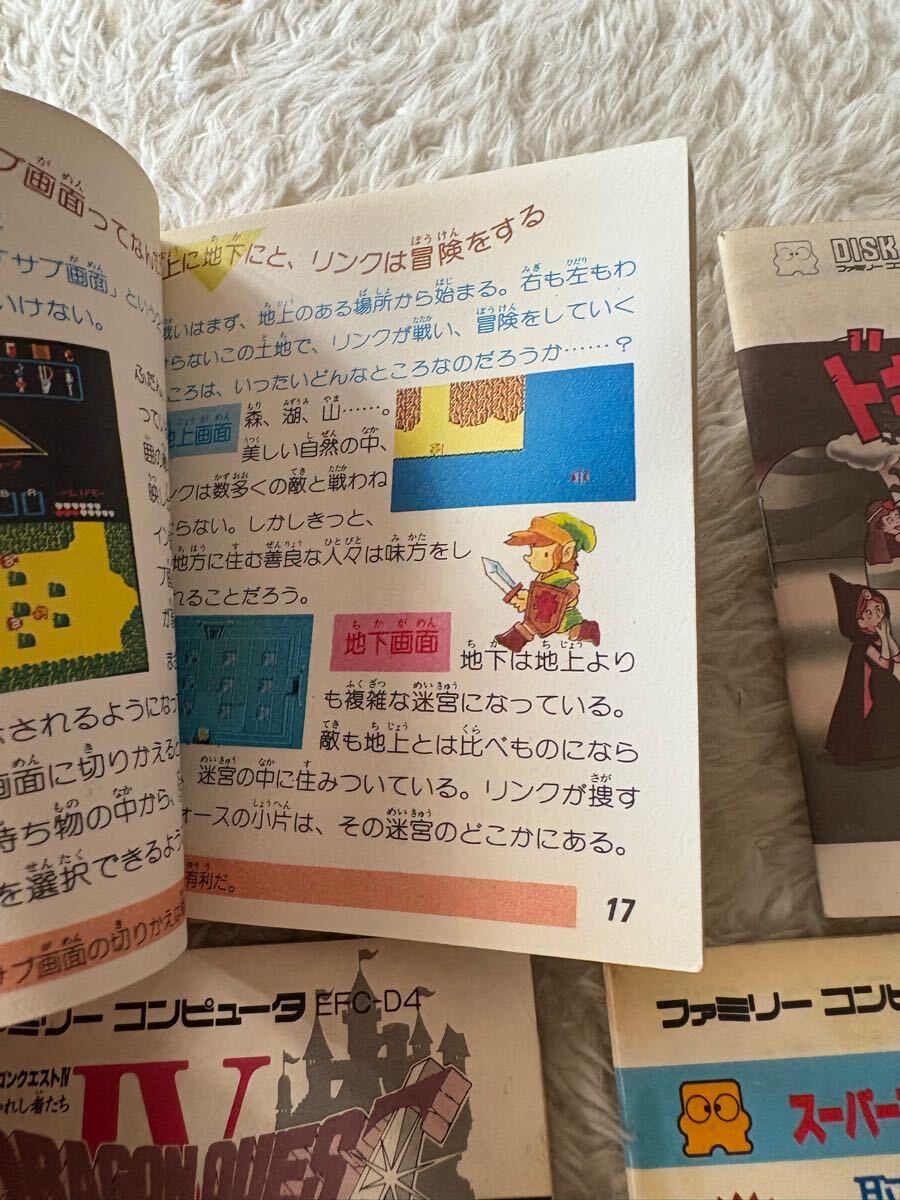 画面ってなん
サブ画面」という
いけない。
されるようになっ
画面に切りかえると
持ち物の中から、
を選択できるよう
サブ画面の切りかえ
上に地下にと、リンクは冒険をする
戦いはまず、地上のある場所から始まる。右も左もわ
らないこの土地で、リンクが戦い、冒険をしていく
ころは、いったいどんなところなのだろうか……?
地上画面
森、湖、山……。
美しい自然の中、
ンクは数多くの敵と戦わね
らない。しかしきっと、
地方に住む善良な人々は味方をし
れることだろう。
地下画面
地下は地上より
も複雑な迷宮になっている。
敵も地上とは比べものになら
迷宮の中に住みついている。リンクが捜す
ォースの小片は、その迷宮のどこかにある。
有利だ。
17
DISK
ファミリー コ
ミリー コンピュータ EFC-D4
ゴンクエストIV
かれし者たち
IV
RAGON QUES
ファミリー コンピ
スーパー